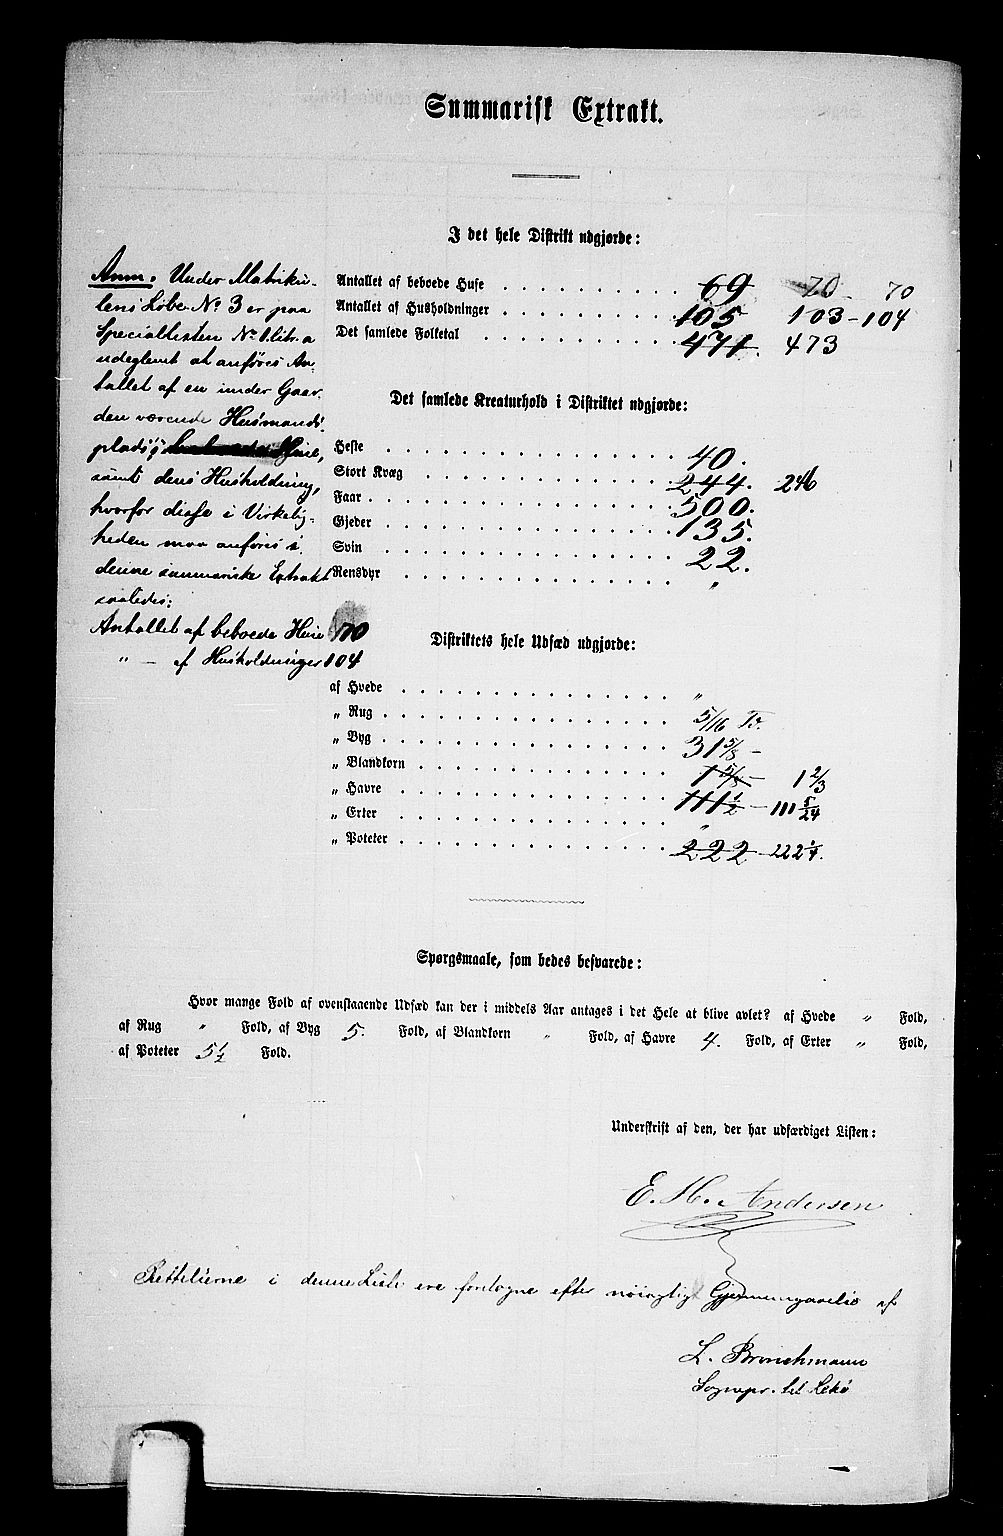 Summarisk Extrakt.
I det hele Distrikt udgjorde:
Antallet af beboede Huse . . . 69 70 - 70
Antallet af Husholdninger . . . 105 103 - 104
Det samlede Folketal . . . 471. 473
Anm. Under Matriku-
lens Løbe No 3 er paa
Speciallisten No 1 litr. a
udeglemt at anføres An-
tallet af en under Gaar-
den værende Husmands-
plads's
samt dens Husholdning,
hvorfor disse i Virkelig-
heden maa anføres i
denne summariske Extrakt
saaledes:
Antallet af beboede Huse 70
" — af Husholdninger 104
Det samlede Kreaturhold i Distriktet udgjorde:
Heste . . . 40.
Stort Kvæg . . . 244. 246
Faar . . . 500.
Gjeder . . . 135.
Svin . . . 22.
Rensdyr . . . "
Distriktets hele Udsæd udgjorde:
af Hvede . . . "
" Rug . . . 5/16 Tr.
" Byg . . . 31 5/8 -
" Blandkorn . . . 1 5/8 - 1 2/3
" Havre . . . 111 1/2 - 111 5/24
" Erter . . . "
" Poteter . . . 222 - 222 1/4.
Spørgsmaale, som bedes besvarede:
Hvor mange Fold af ovenstaaende Udsæd kan der i middels Aar antages i det Hele at blive avlet? af Hvede " Fold,
af Rug " Fold, af Byg 5. Fold, af Blandkorn " Fold, af Havre 4. Fold, af Erter " Fold,
af Poteter 5 1/2 Fold.
Underskrift af den, der har udfærdiget Listen:
E. H. Andersen
Rettelserne i denne Liste ere foretagne efter nøiagtig Gjennemgaaelse af
L. Brinchmann
Sognepr. til Lekø